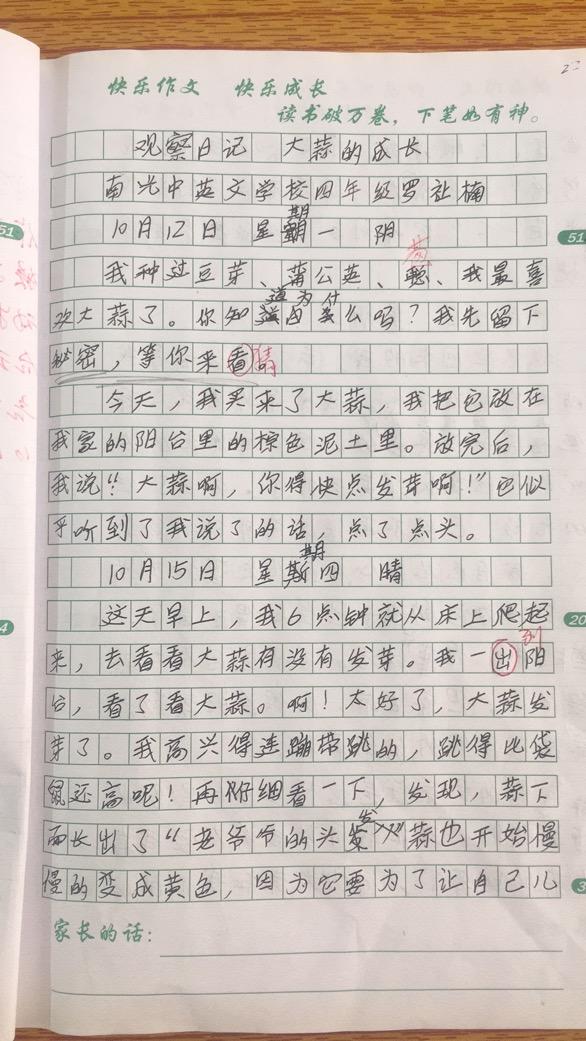 22
快乐作文 快乐成长
读书破万卷，下笔如有神。
观察日记 大蒜的成长
南光中英文学校四年级罗祉楠
期
10月12日 星一 阴
葱
我种过豆芽、蒲公英、聪、我最喜
道为什
欢大蒜了。你知么吗？我先留下
秘密，等你来看猜。
今天，我买来了大蒜，我把它放在
我家的阳台里的棕色泥土里。放完后，
我说“大蒜啊，你得快点发芽啊！”它似
乎听到了我说了的话，点了点头。
期
10月15日 星斯四 晴
这天早上，我6点钟就从床上爬起
来，去看看大蒜有没有发芽。我一出阳
到
台，看了看大蒜。啊！太好了，大蒜发
芽了。我高兴得连蹦带跳的，跳得比袋
鼠还高呢！再仔细看一下，发现，蒜下
发
面长出了“老爷爷的头”蒜也开始慢
慢的变成黄色，因为它要为了让自己儿
家长的话：
51
51
20
4
3